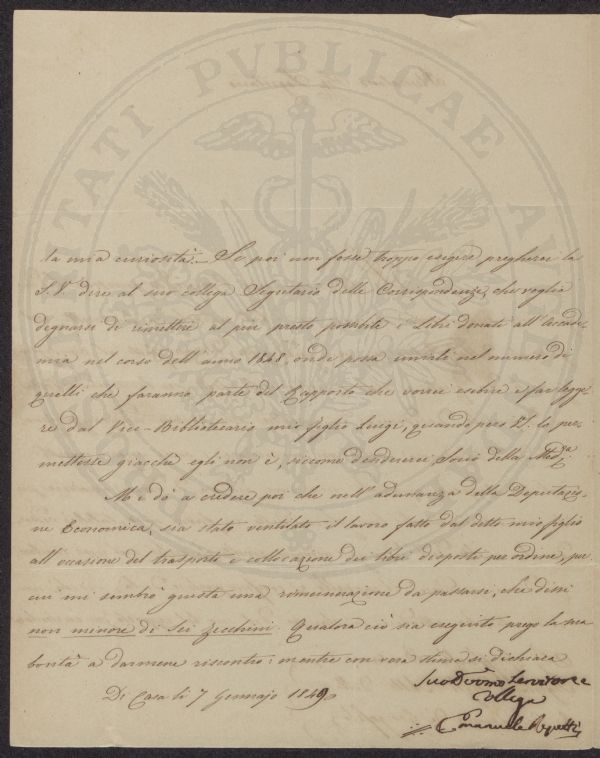 la mia curiosità. Se poi non fosse troppo esigere pregherei la
S.V. dire al suo collega Segretario delle Corrispondenze, che voglia
degnarsi di rimettere al più presto possibile i Libri donati all'Accade-
mia nel corso dell'anno 1848, onde possa unirli nel numero di
quelli che faranno parte del Rapporto che vorrei esibire e far legge-
re dal Vice-Bibliotecario mio figlio Luigi, quando pero lo per-
mettesse giacchè egli non è, siccome, Socio della Med.ª
Mi do a credere poi che nell'adunanza della Deputazio-
ne Economica, sia stato ventilato il lavoro fatto dal detto mio figlio
all'occasione del trasporto e collocazione dei libri disposti per ordine, per
cui mi sembrò giusta una remunerazione da passarsi, che dissi
non minore di Sei Zecchini. Qualora ciò sia eseguito prego la sua
bontà a darmene riscontro: mentre con vera stima si dichiara
Di Casa li 7 Gennajo 1849
Suo Servitore e
Collega
Emanuele Repetti
PUBLICAE